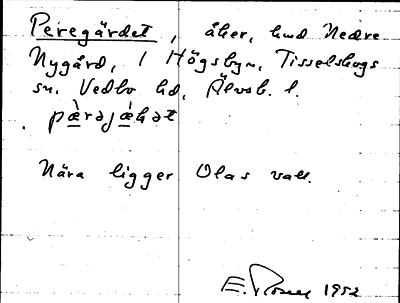 Peregärdet, åker, hmd Nedre
Nygård, i Högsbyn, Tisselskogs
sn. Vedbo hd, Älvsb. l.
pæ̀rəjæ̀ɫət
Nära ligger Olas vall.
E. 1952